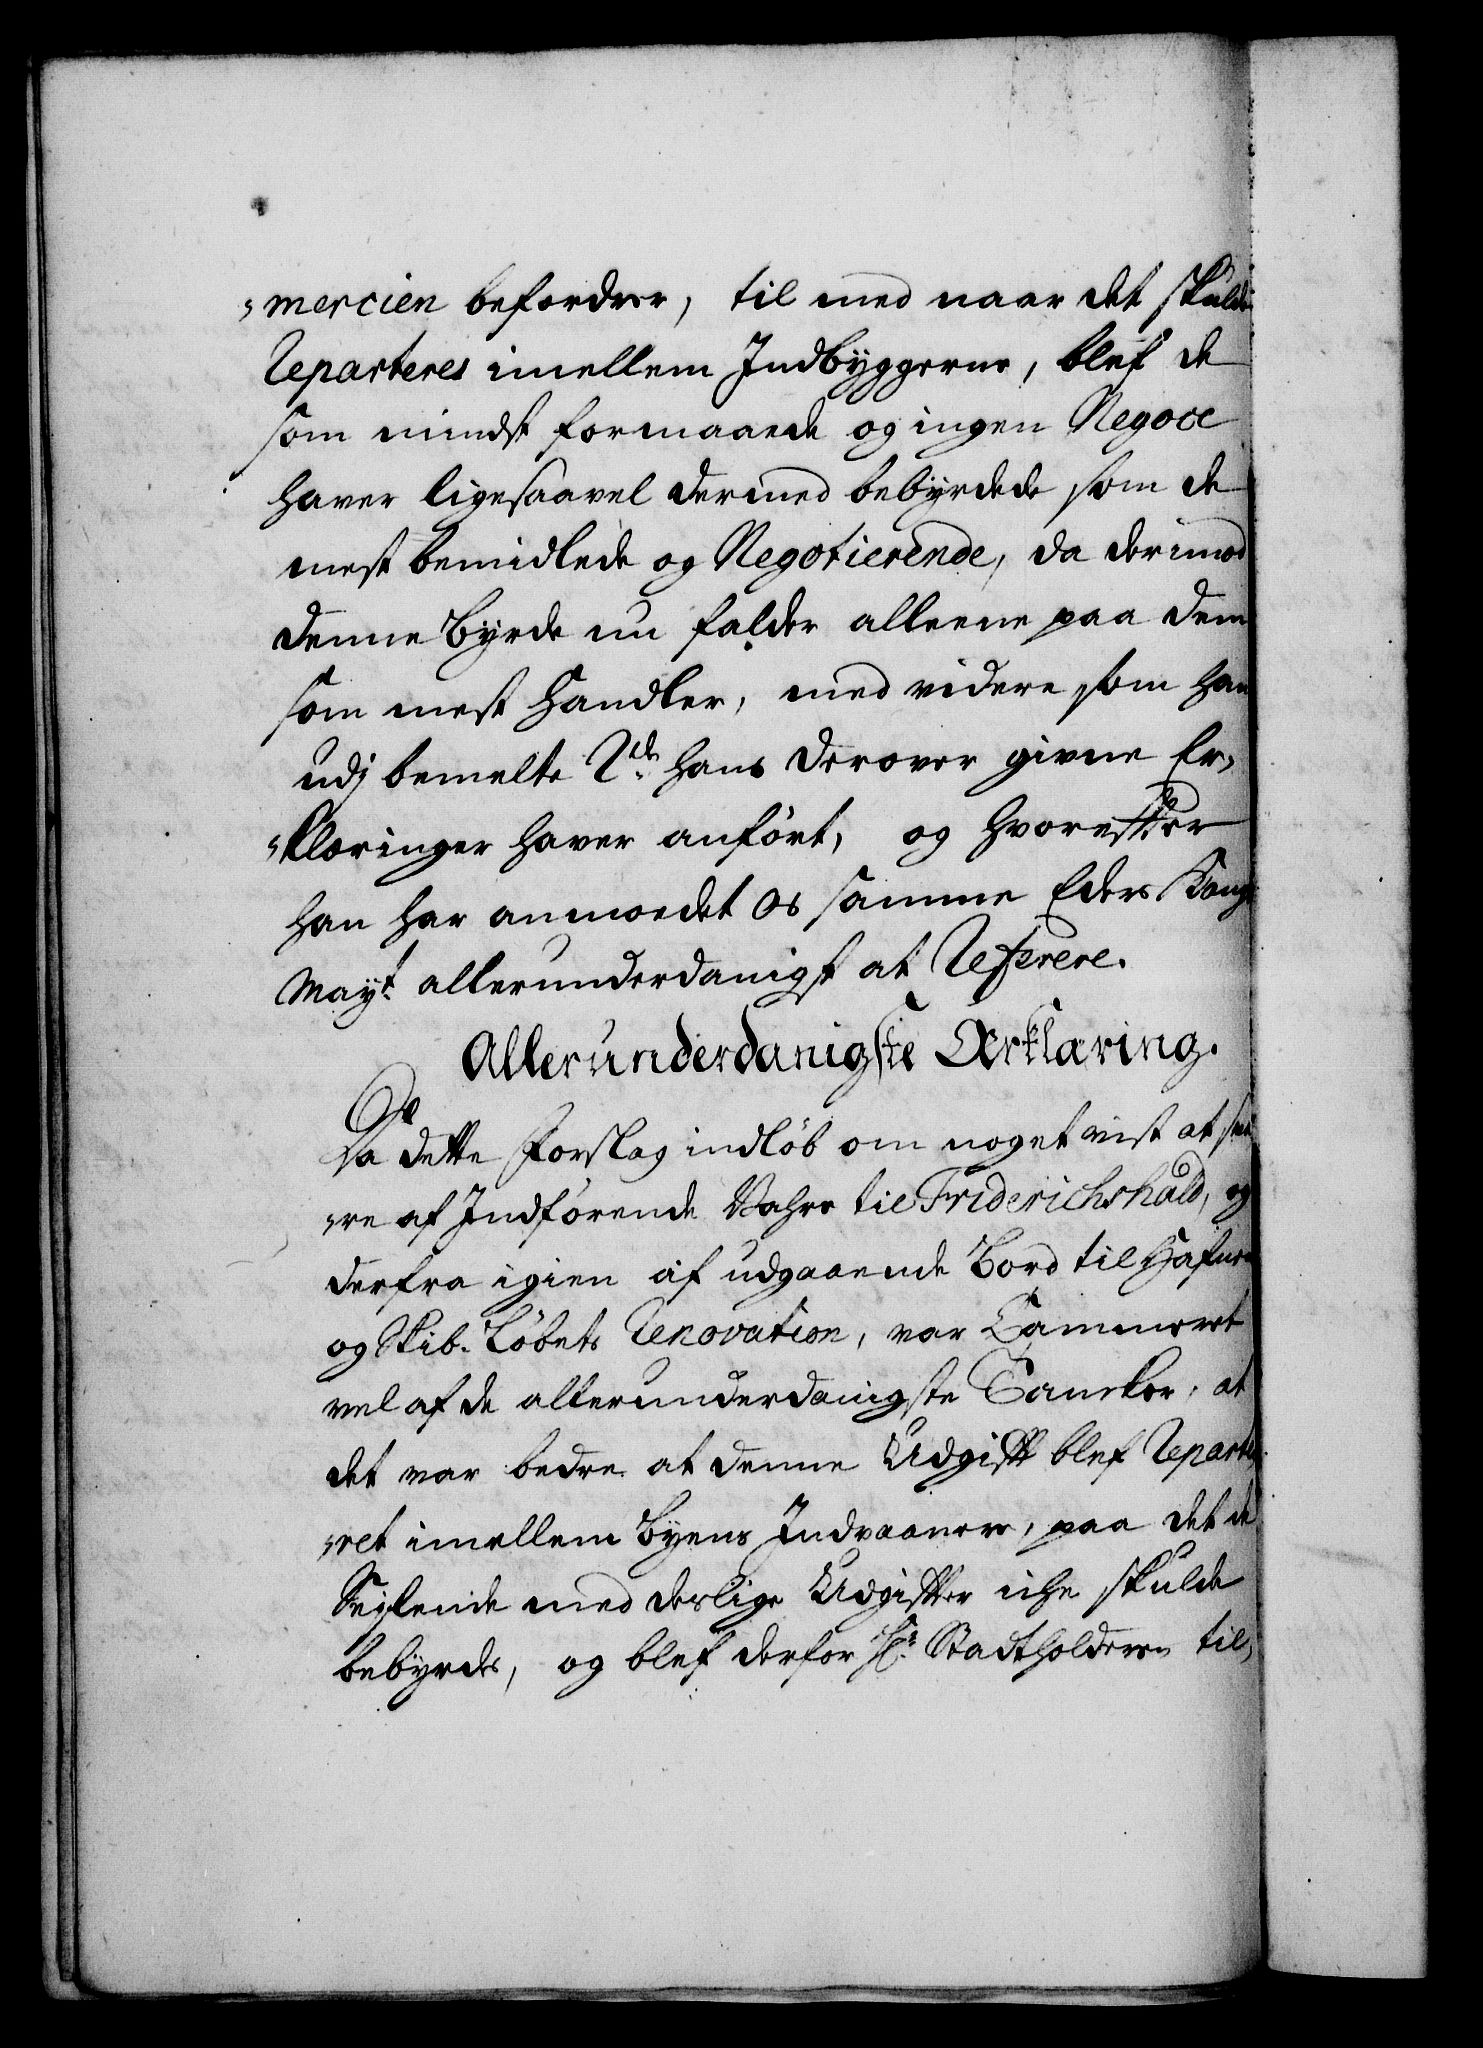 „mercien befordrer, til med naar det skulde
Reparteres imellem Indbyggerne, blef de
som mindst formaaede og ingen Negoce
haver ligesaavel dermed bebyrdede som de
mest bemidlede og Negotierende, da derimod
denne Byrde nu falder alleene paa dem
som mest Handler, med videre som han
udj bemelte 2de hans derover givne Er„
„klæringer haver anført, og hvorefter
han har anmodet os samme Eders Kongl
Mayt allerunderdanigst at Referere.
Allerunderdanigste Erklæring.
Da dette Forslag indløb om noget vist at sva
„re af Indførende Vahre til Friderichshald, og
derfra igien af udgaaende Bord til Hafnens
og Skib-Løbets Renovation, var Cammeret
vel af de allerunderdanigste Tancker, at
det var bedre at denne Udgift blef Reparte
„ret imellem Byens Indvaanere, paa det de
Seiglende med deslige Udgifter iche skulde
bebyrdes, og blef derfor Hr. Stadtholderen til„